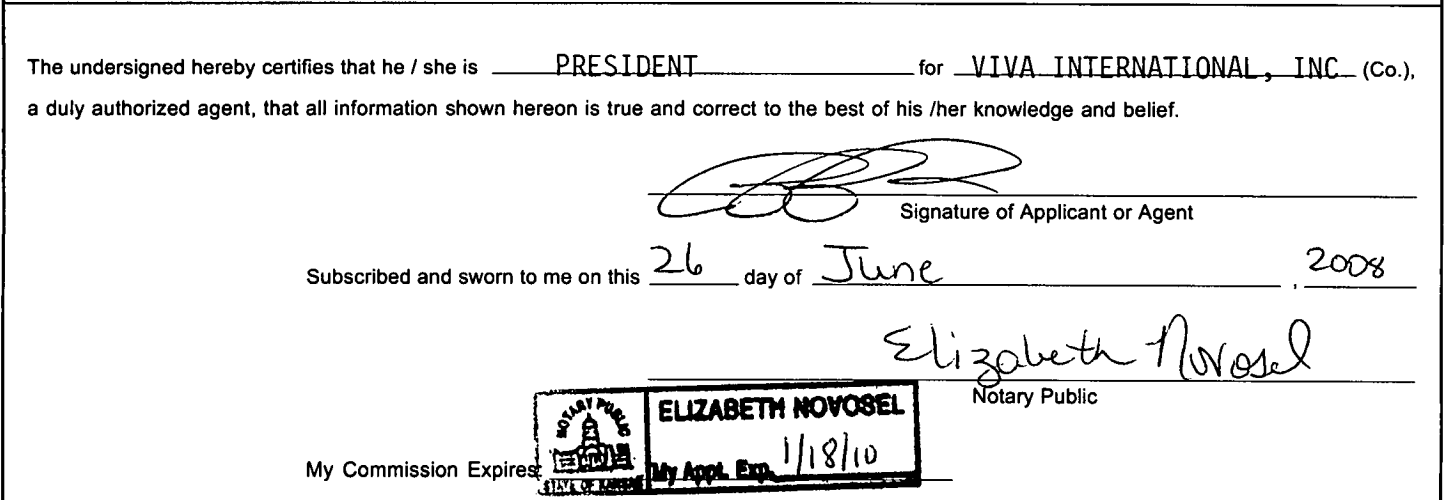 The undersigned hereby certifies that he / she is PRESIDENT for VIVA INTERNATIONAL, INC (Co.),
a duly authorized agent, that all information shown hereon is true and correct to the best of his /her knowledge and belief.
Signature of Applicant or Agent
Subscribed and sworn to me on this 26 day of June , 2008
Elizabeth Novosel
Notary Public
NOTARY PUBLIC
STATE OF KANSAS
ELIZABETH NOVOSEL
My Appt. Exp. 1/18/10
My Commission Expires: